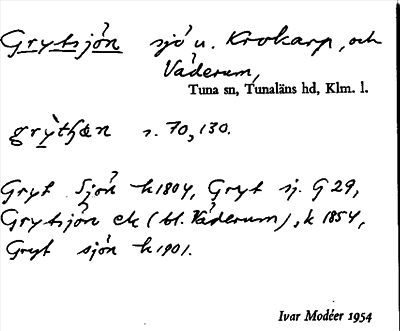 Grytsjön sjö u. Krokarp, och
Våderum,
Tuna sn, Tunaläns hd, Klm. l.
s. 70, 130.
Gryt Sjön k 1804, Gryt sj. G 29,
Grytsjön ek (bl. Våderum), k 1854,
Gryt sjön k 1901.
Ivar Modéer 1954